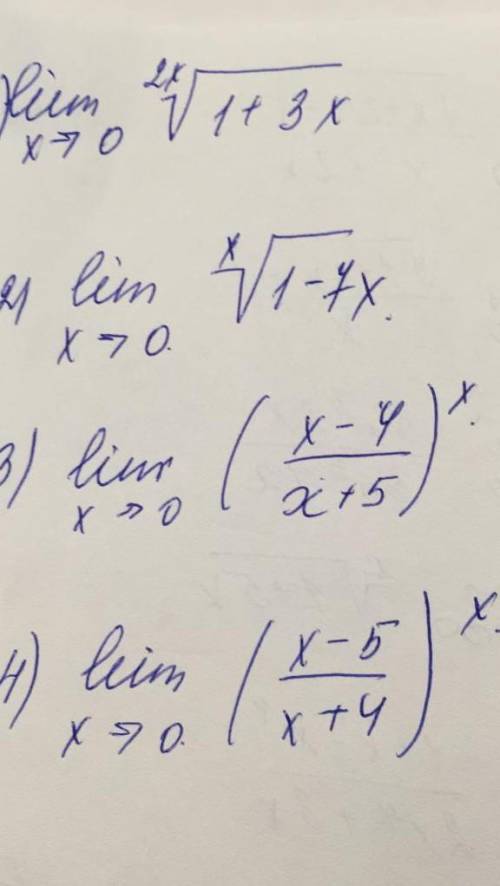 1) lim x→0 \sqrt[2x]{1+3x}
2) lim x→0. \sqrt[x]{1-7x}.
3) lim x→0 (\frac{x-4}{x+5})^x.
4) lim x→0. (\frac{x-5}{x+4})^x.